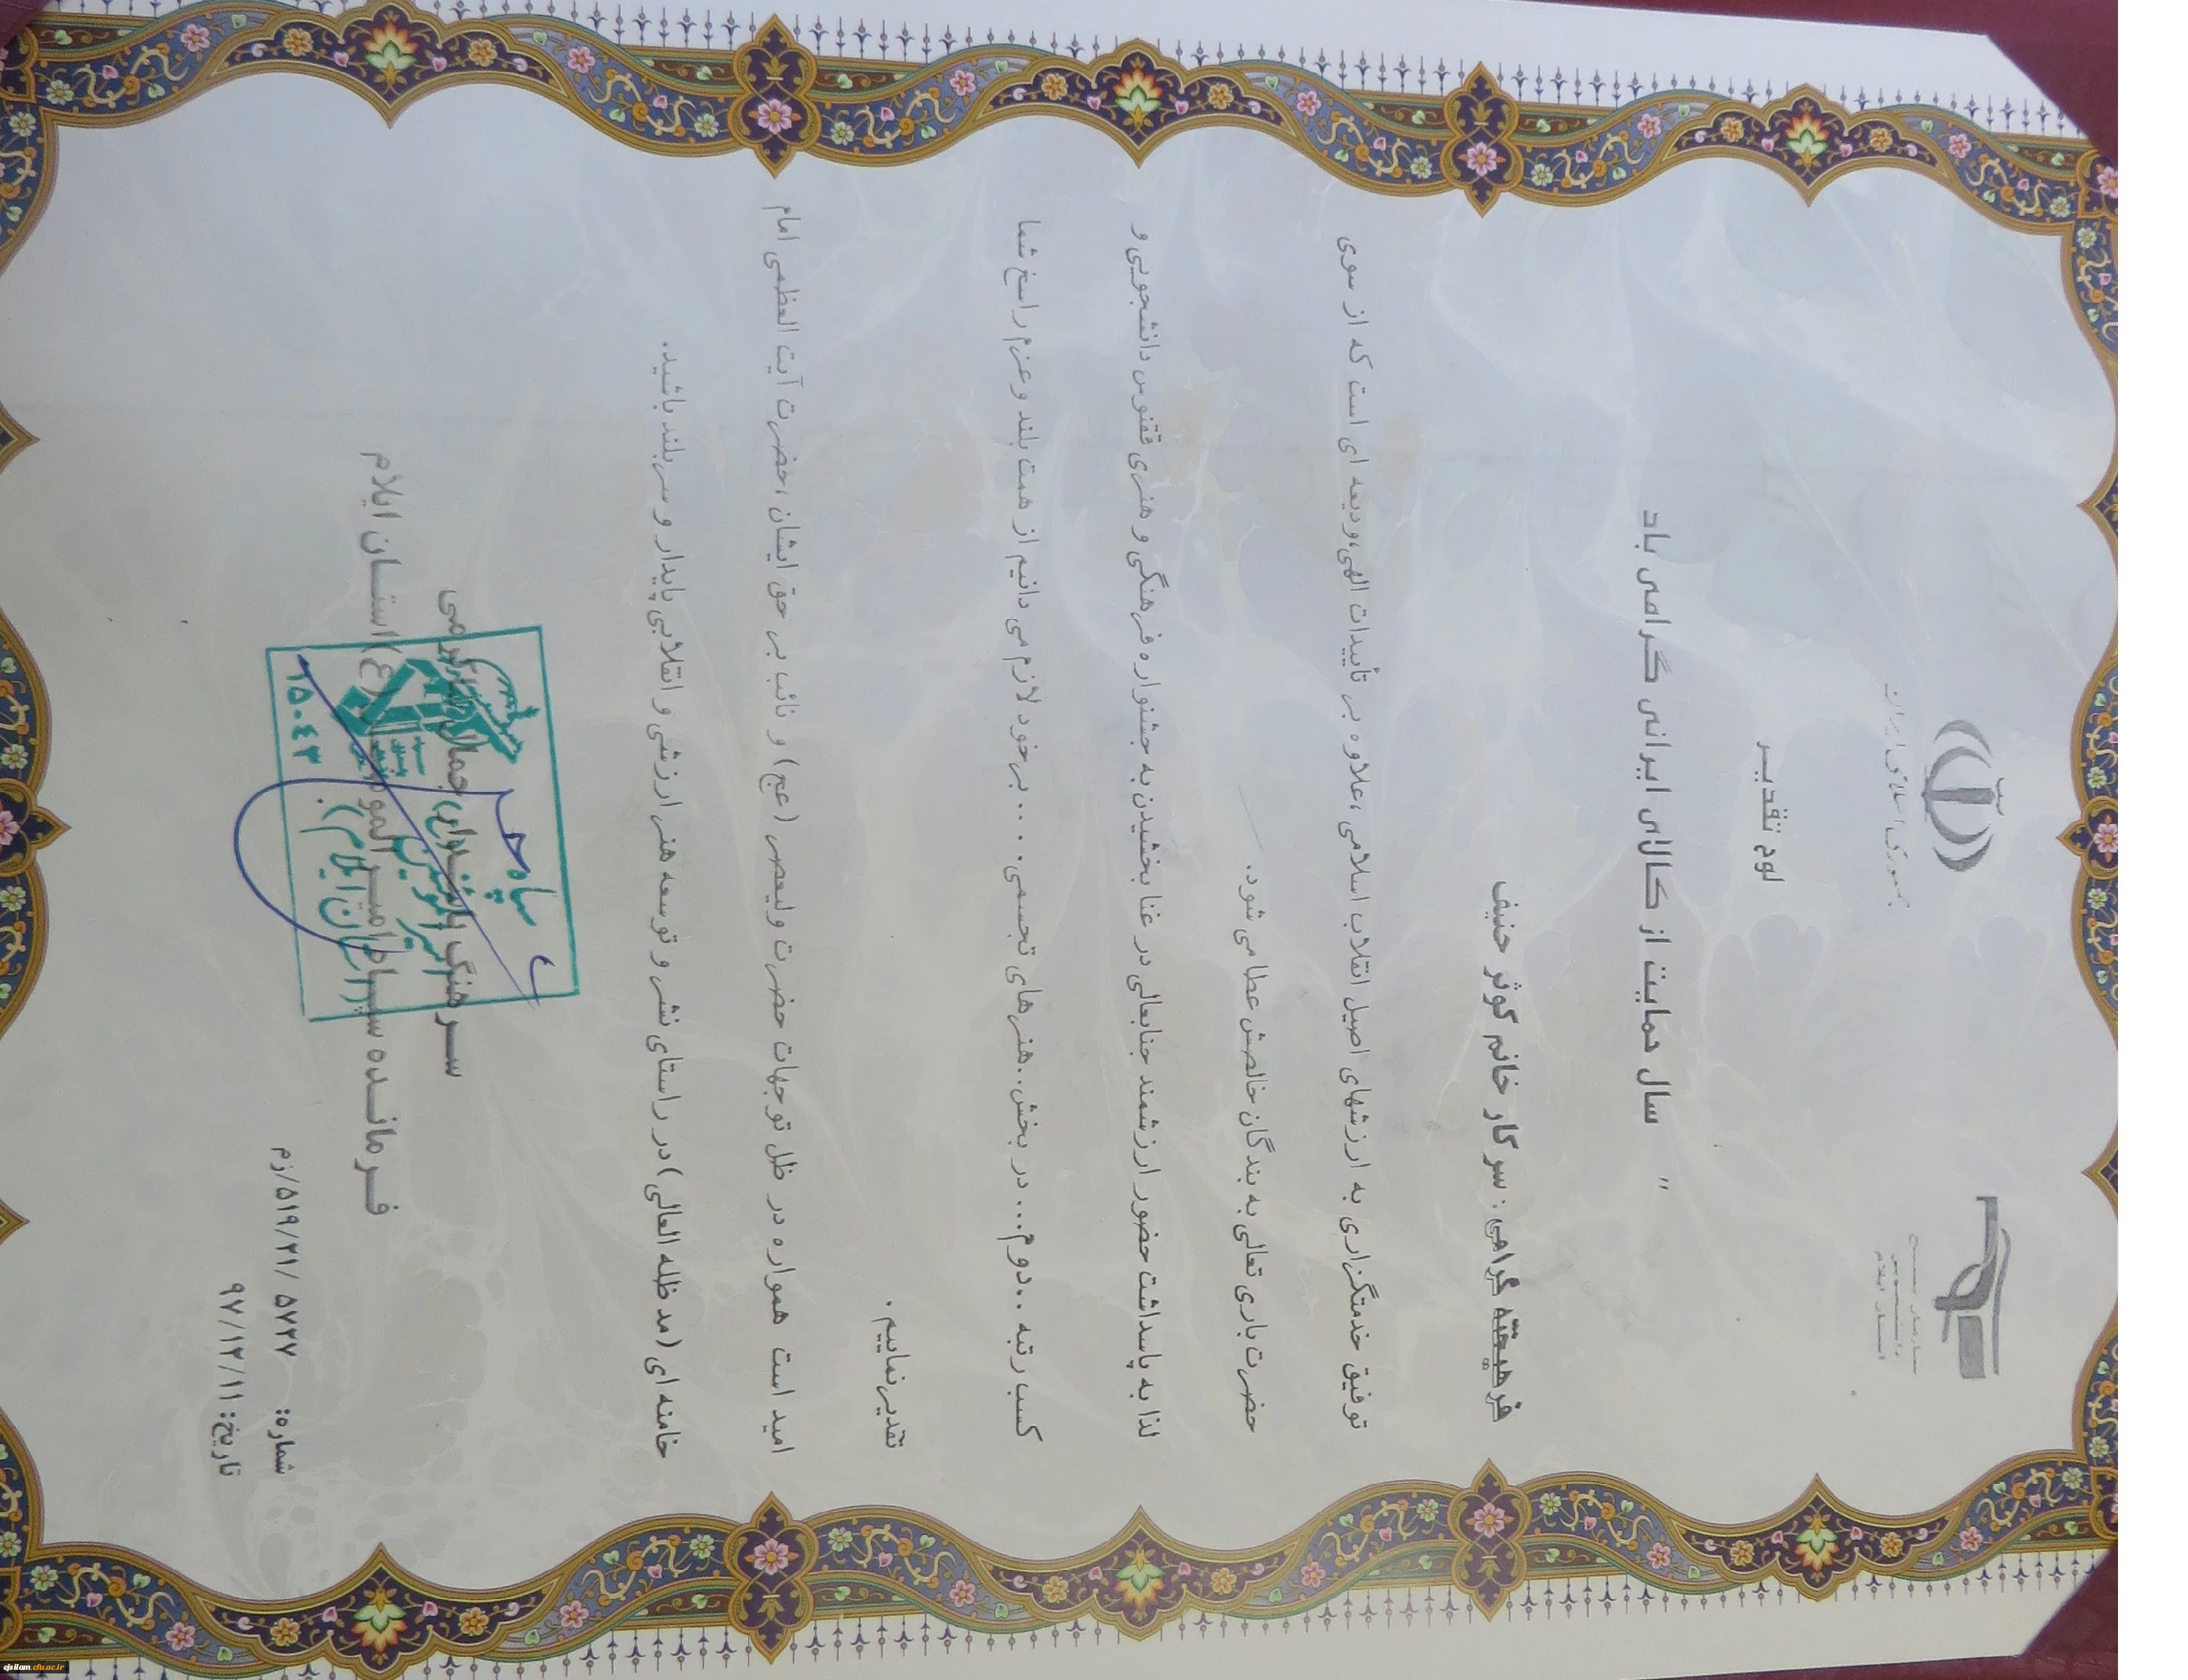 جمهوری اسلامی ایران
سازمان بسیج
دانشجویی
استان ایلام
لوح تقدیر
" سال حمایت از کالای ایرانی گرامی باد
فرهیخته گرامی : سرکار خانم کوثر حنیف
توفیق خدمتگزاری به ارزشهای اصیل انقلاب اسلامی ،علاوه بر تأییدات الهی،ودیعه ای است که از سوی
حضرت باری تعالی به بندگان خالصش عطا می شود.
لذا به پاسداشت حضور ارزشمند جنابعالی در غنا بخشیدن به جشنواره فرهنگی و هنری ققنوس دانشجویی و
کسب رتبه ..دوم... در بخش..هنرهای تجسمی. ... برخود لازم می دانیم از همت بلند و عزم راسخ شما
تقدیر نماییم .
امید است همواره در ظل توجهات حضرت ولیعصر (عج) و نائب بر حق ایشان ،حضرت آیت العظمی امام
خامنه ای (مد ظله العالی) در راستای نشر و توسعه هنر ارزشی و انقلابی پایدار و سربلند باشید.
سرهنگ پاسدار جمال شاکرمی
فرمانده سپاه امیرالمومنین (ع) استان ایلام
سپاه
امیرالمومنین
(استان ایلام)
۱۵۰۴۳
شماره: ۵۷۲۷ /۵۱۹/۲۱/زم
تاریخ: ۹۷/۱۲/۱۱
ejsilam.cfu.ac.ir